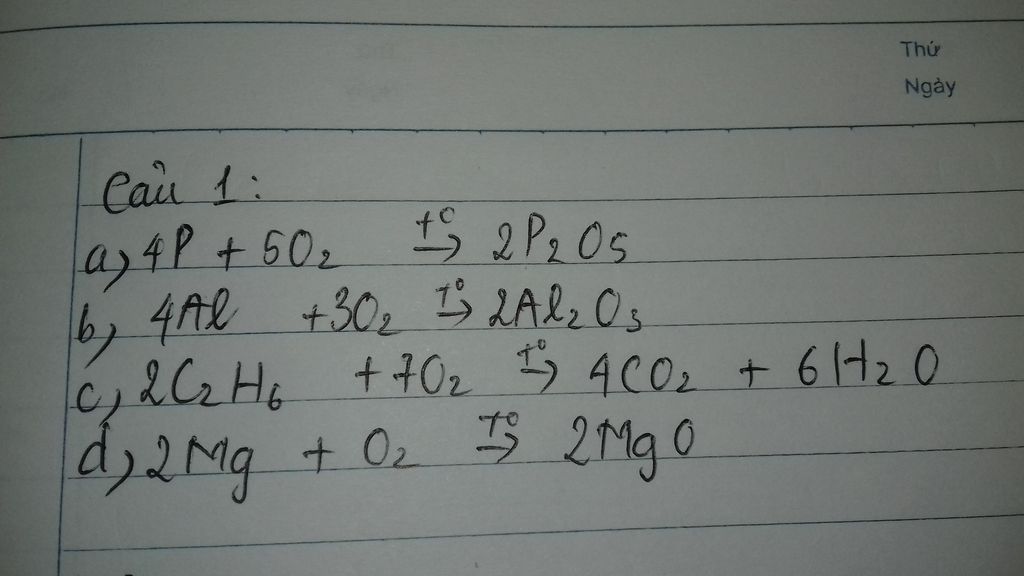 Thứ
Ngày
Câu 1:
a, 4P + 5O₂ t° → 2P₂O₅
b, 4Al + 3O₂ t° → 2Al₂O₃
c, 2C₂H₆ + 7O₂ t° → 4CO₂ + 6H₂O
d, 2Mg + O₂ t° → 2MgO